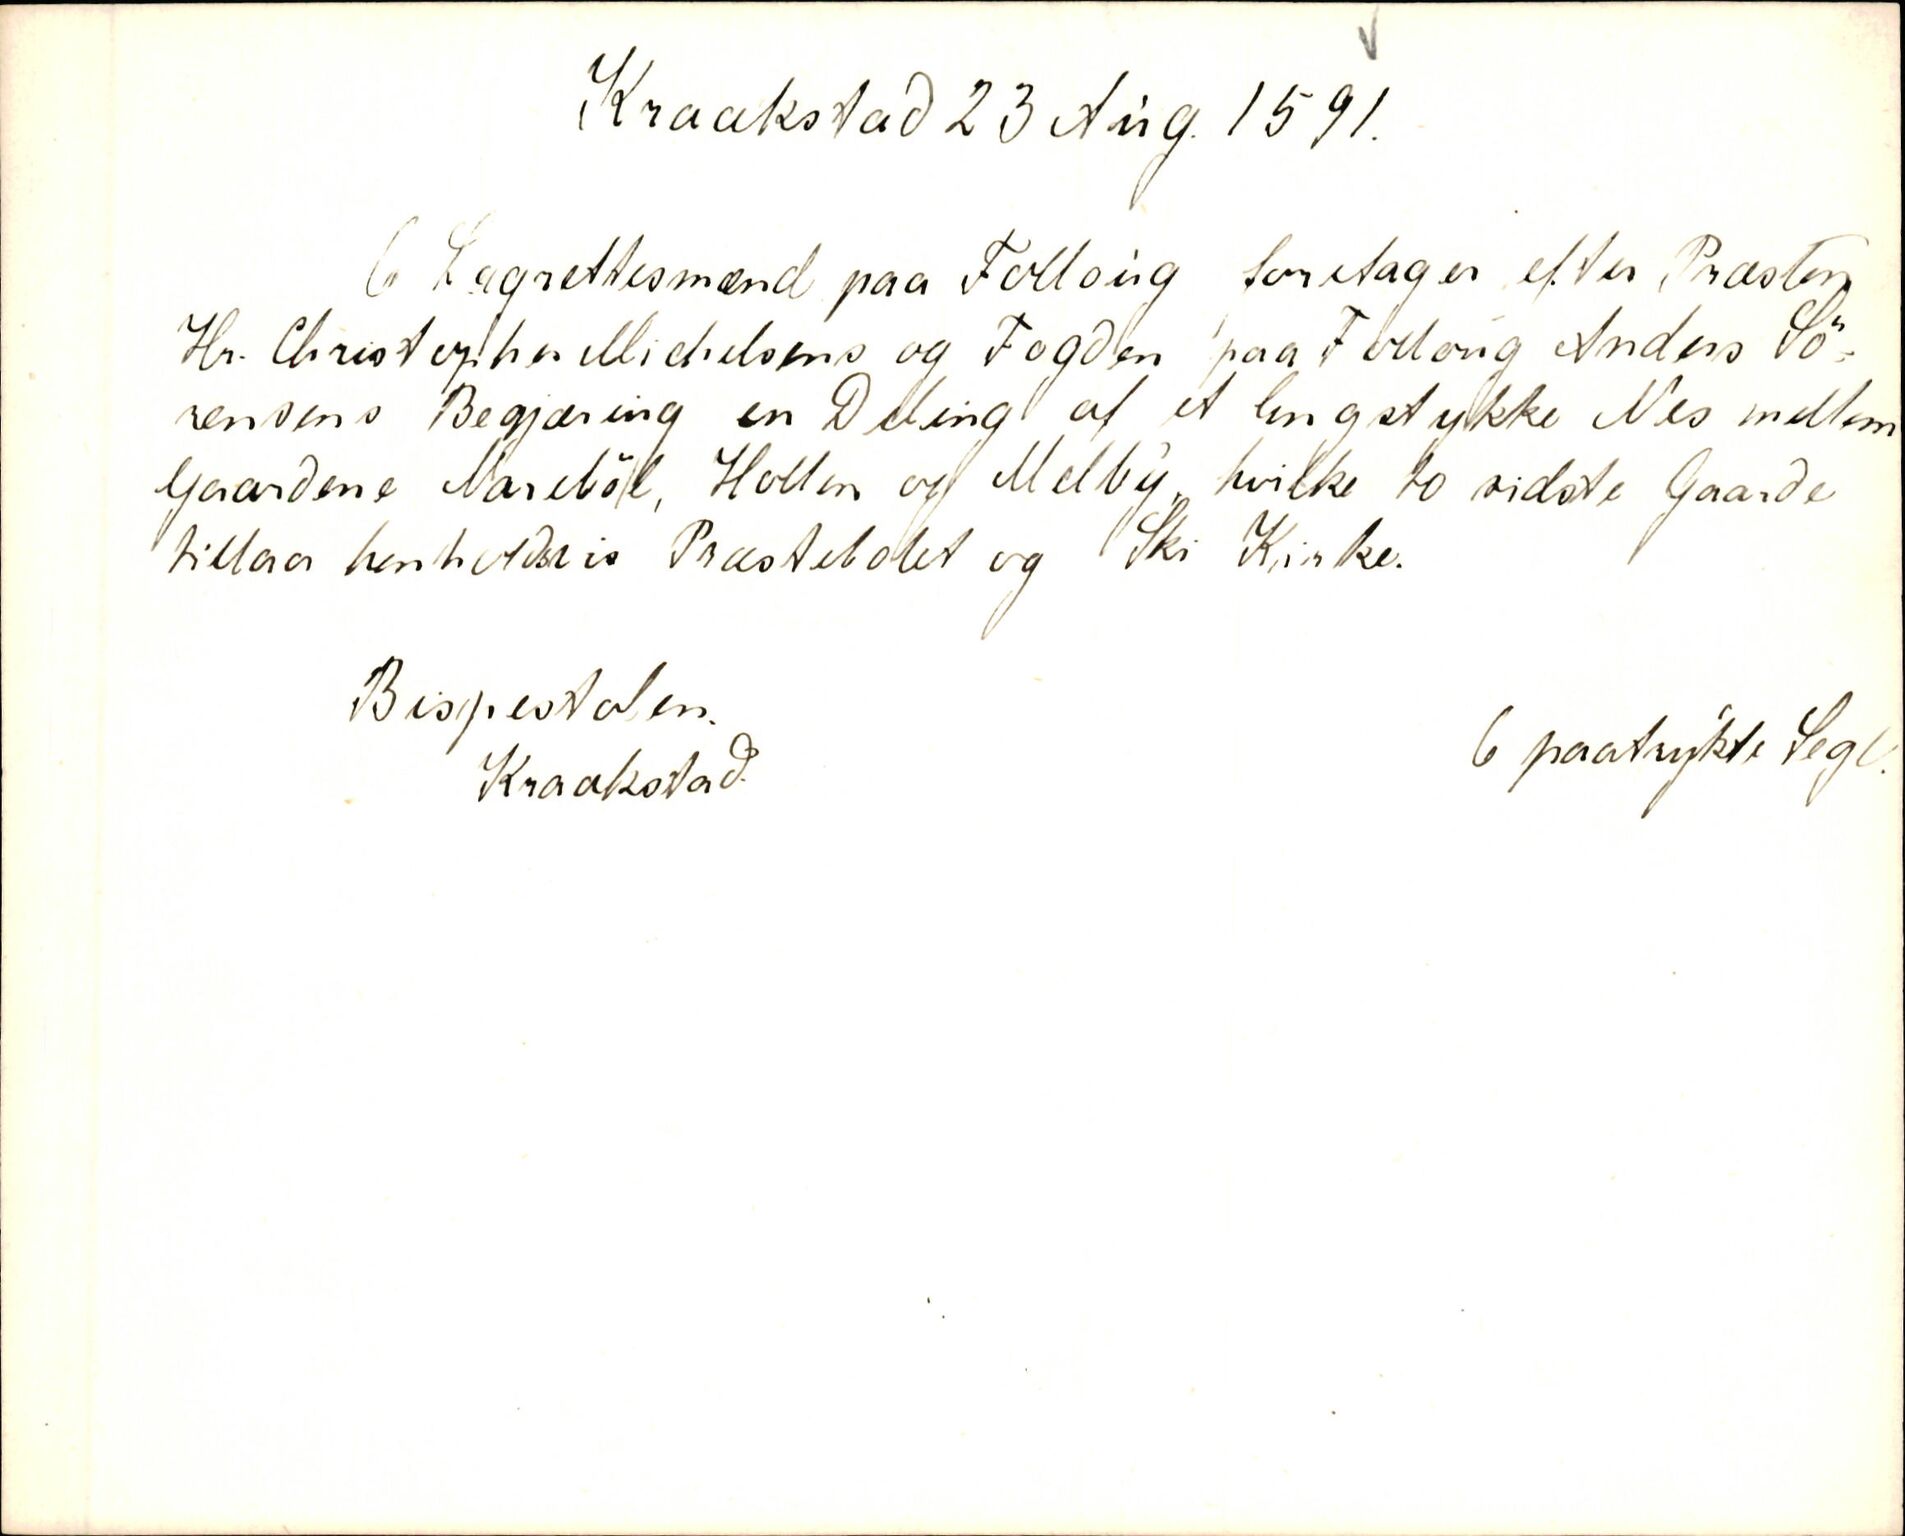 Kraakstad 23 Aug. 1591.
6 Lagrettesmænd paa Folloug foretager efter Præsten
Hr. Christopher Michelsens og Fogden paa Folloug Anders Sö-
rensens Begjæring en Deling af et Engstykke Nes mellem
Gaardene Nareböl, Hollen og Melby, hvilke to sidste Gaarde
tillaa henholdsvis Præstebolet og Ski Kirke.
Bispestolen.
Kraakstad.
6 paatrykte Segl.